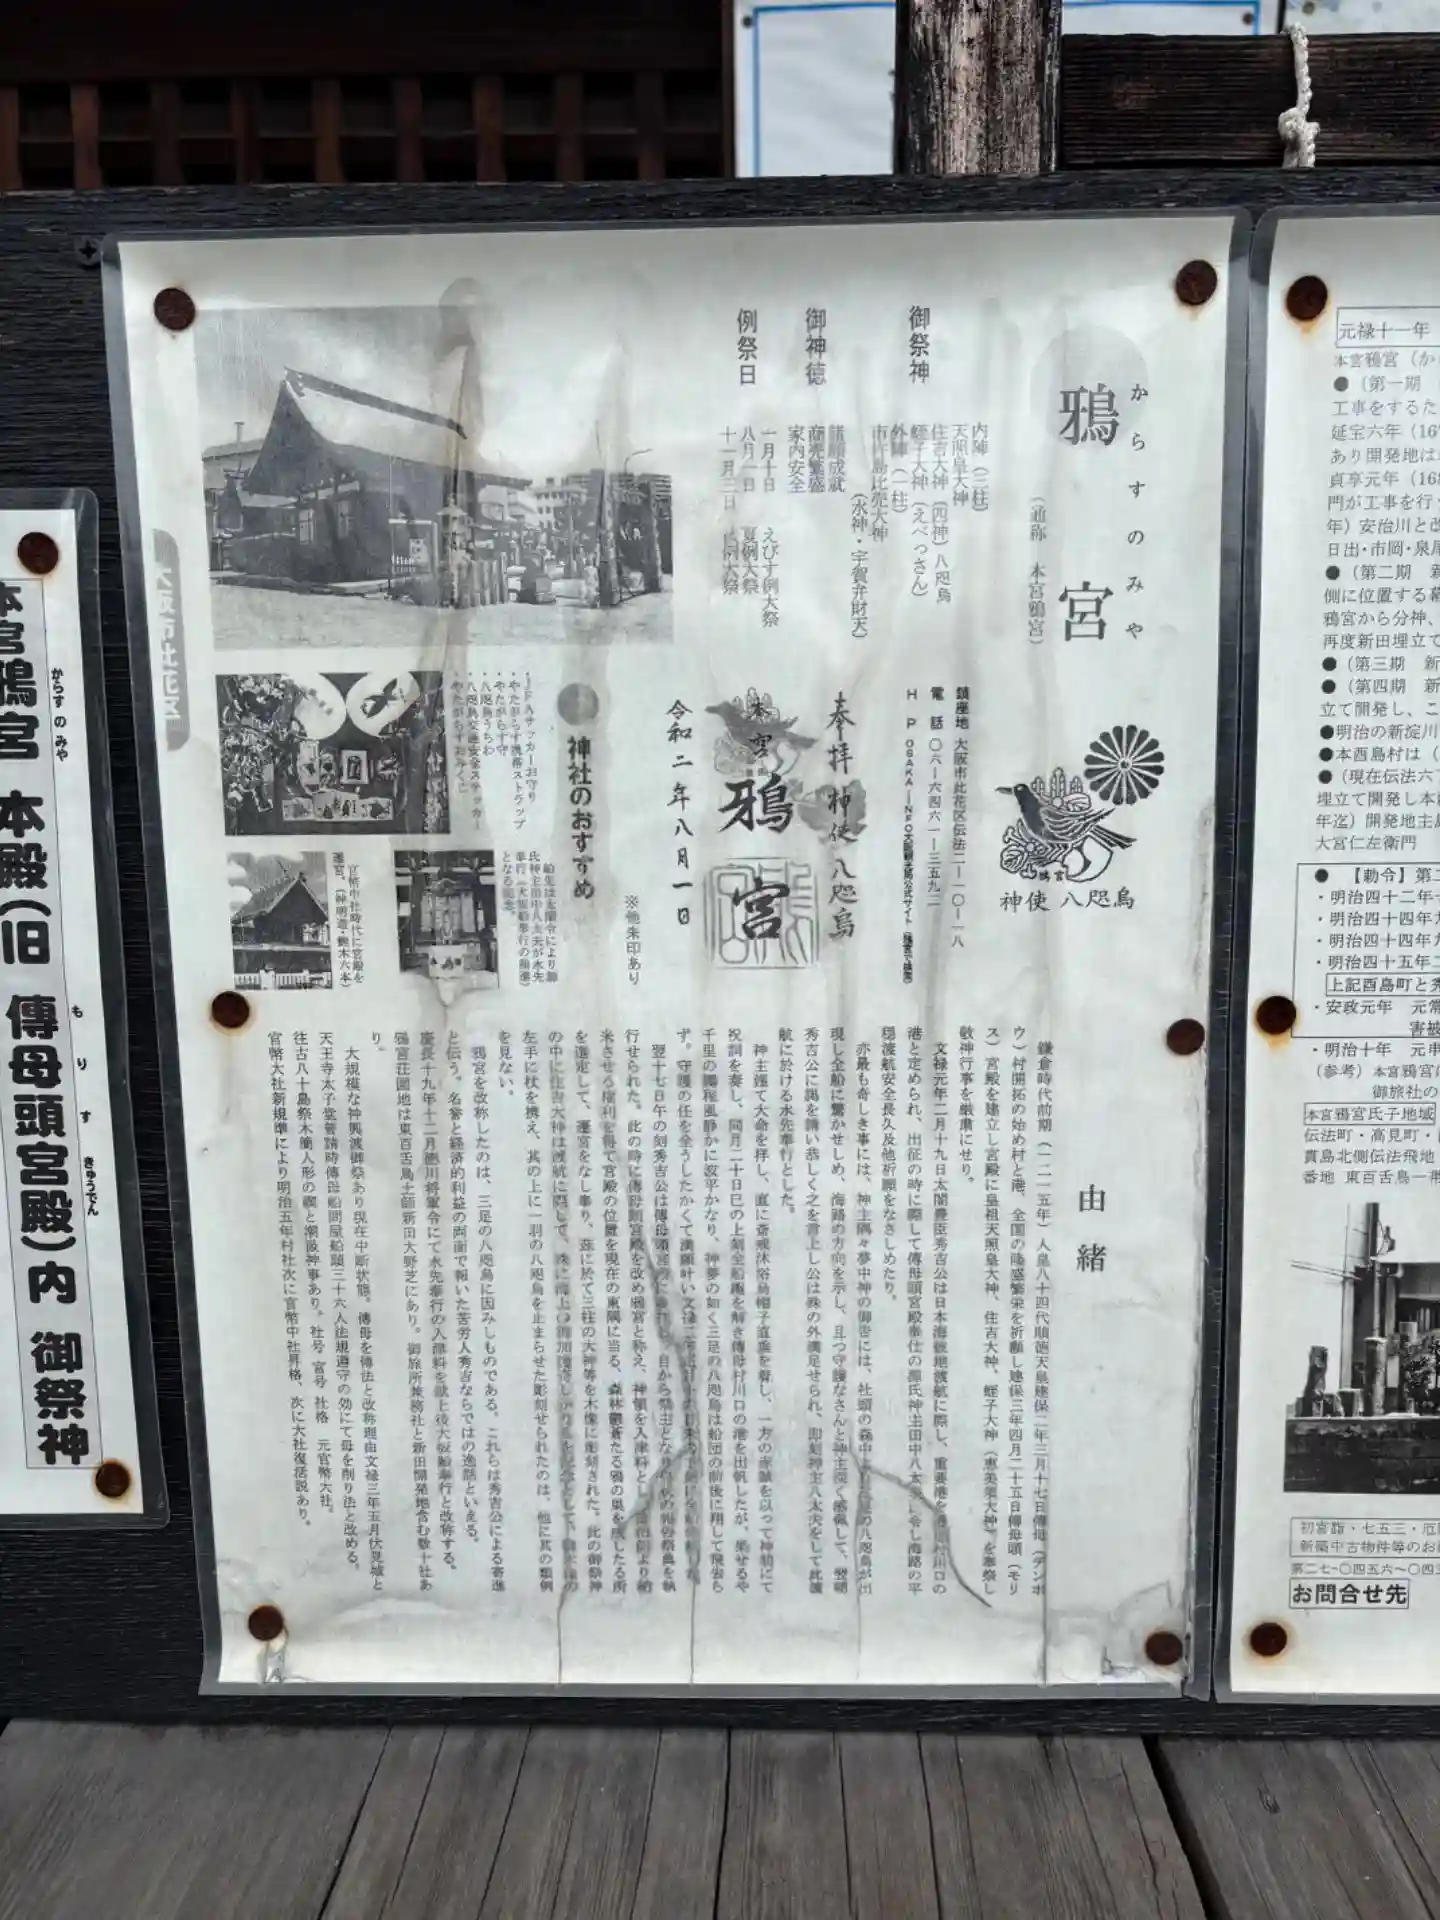 からすのみや
鴉宮
（通称　本宮鴉宮）
御祭神
内陣（三柱）
天照皇大神
住吉大神（四神）八咫烏
蛭子大神（えべっさん）
外陣（一柱）
市杵島比売大神
（水神・宇賀弁財天）
御神徳
諸願成就
商売繁盛
家内安全
例祭日
一月十日　えびす例大祭
八月一日　夏例大祭
十一月三日
神使 八咫烏
鎮座地　大阪市此花区伝法二ー一〇ー一八
電　話　〇六ー六四六一ー三五九二
奉拝 神使 八咫烏
本宮
鴉宮
令和二年八月一日
※他朱印あり
神社のおすすめ
・JFAサッカーお守り
・やたがらす携帯ストラップ
・やたがらす守
・八咫烏うちわ
・八咫烏交通安全ステッカー
・やたがらすおみくじ
官幣中社時代に宮殿を
遷宮。（神明造・鰹木六本）
由緒
鎌倉時代前期（一二一五年）人皇八十四代順徳天皇建保二年三月十七日傳母（デンボ
ウ）村開拓の始め村と港、全国の隆盛繁栄を祈願し建保三年四月二十五日傳母頭（モリ
ス）宮殿を建立し宮殿に皇祖天照皇大神、住吉大神、蛭子大神（恵美須大神）を奉祭し
敬神行事を厳粛にせり。
文禄元年二月十九日太閤豊臣秀吉公は日本海彼地渡航に際し、重要港を
港と定められ、出征の時に際して傳母頭宮殿奉仕の源氏神主田中八太夫
穏渡航安全長久及他祈願をなさしめたり。
亦最も奇しき事には、神主隅々夢中神の御告には、社頭の森中
現し全船に驚かせしめ、海路の方向を示し、且つ守護なさんと神主深く感佩して、翌朝
秀吉公に謁を請い恭しく之を言上し公は殊の外満足せられ、即刻神主八太夫をして此渡
航に於ける水先奉行とした。
神主謹て大命を拝し、直に斎戒沐浴烏帽子直垂を着し、一方の赤誠を以って神前にて
祝詞を奏し、同月二十日巳の上刻全船纜を解き傳母村川口の港を出帆したが、果せるや
千里の海程風静かに波平かなり、神夢の如く三足の八咫烏は船団の前後に翔して飛去ら
ず。守護の任を全うしたかくて満願叶い文禄二年
翌十七日午の刻秀吉公は傳母頭宮殿に
行せられた。此の時に傳母頭宮殿を改め鴉宮と称え、神領を入津料とし
来させる権利を得て宮殿の位置を現在の東隅に当る、森林鬱蒼たる鴉の巣を残したる所
を選定して、遷宮をなし奉り、茲に於て三柱の大神等を木像に彫刻された。此の御祭神
の中に住吉大神は渡航に際して、殊に海上の御加護
左手に杖を携え、其の上に一羽の八咫烏を止まらせた彫刻せられたのは、他に其の類例
を見ない。
鴉宮を改称したのは、三足の八咫烏に因みしものである。これらは秀吉公による寄進
と伝う。名誉と経済的利益の両面で報いた苦労人秀吉ならではの逸話といえる。
慶長十九年十二月徳川将軍令にて水先奉行の入津料を献上後大坂船奉行と改称する。
鴉宮荘園地は東百舌鳥土師新田大野芝にあり。御旅所兼務社と新田開発地含む数十社あ
り。
大規模な神輿渡御祭あり現在中断状態。傳母を傳法と改称理由文禄三年五月伏見城と
天王寺太子堂普請時傳母船問屋船頭三十六人法規遵守の効にて母を削り法と改める。
往古八十島祭木簡人形の禊と潮湯神事あり。社号 宮号 社格　元官幣大社。
官幣大社新規準により明治五年村社次に官幣中社昇格、次に大社復活説あり。
本宮鴉宮 本殿（旧 傳母頭宮殿）内 御祭神
からすのみや
もりす
きゅうでん
元禄十一年
本宮鴉宮（か
●（第一期
工事をするた
延宝六年（16
あり開発地は
貞享元年（168
門が工事を行
年）安治川と改
日出・市岡・泉尾
●（第二期　新
側に位置する幕
鴉宮から分神、
再度新田埋立て
●（第三期　新
●（第四期　新
立て開発し、こ
●明治の新淀川
●本酉島村は（
●（現在伝法六
埋立て開発し本
年迄）開発地主
大宮仁左衛門
●　【勅令】第二
・明治四十二年
・明治四十四年
・明治四十四年
・明治四十五年二
上記酉島町と秀
・安政元年　元常
害被
・明治十年　元申
（参考）本宮鴉宮
御旅社の
本宮鴉宮氏子地域
伝法町・高見町・
貫島北側伝法飛地
番地　東百舌鳥一帯
初宮詣・七五三・厄
新築中古物件等のお
第二七ー〇四五六〜〇四
お問合せ先